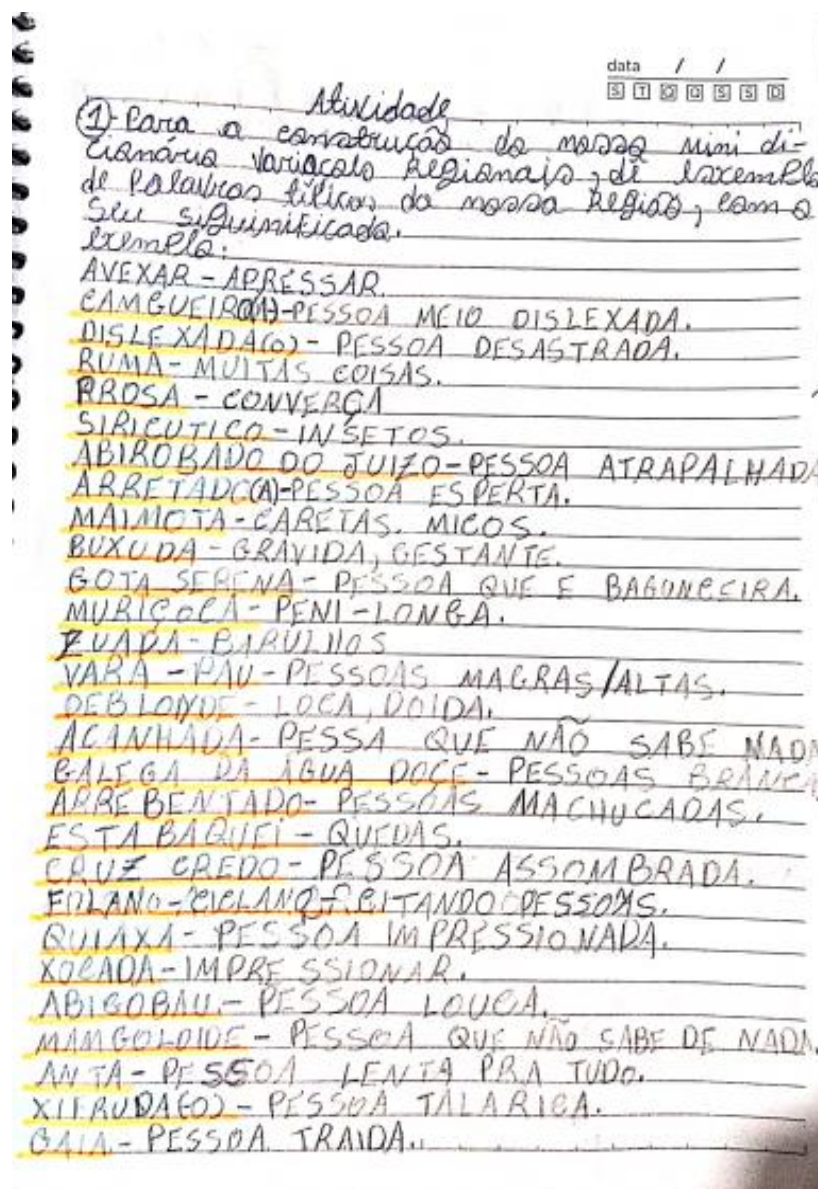 data / /
S T Q Q S S D
Atividade
1- Para a construção do nosso mini di-
cionário variacolo Regionais, dê exemplo
de Palavras tílicas da nossa Região, com o
seu siguinificado.
exemplo:
AVEXAR - APRESSAR
CAMGUEIRO(A)-PESSOA MEIO DISLEXADA.
DISLEXADA(O) - PESSOA DESASTRADA.
RUMA - MUITAS COISAS.
PROSA - CONVERÇA
SIRICUTICO - INSETOS.
ABIROBADO DO JUIZO-PESSOA ATRAPALHADA
ARRETADO(A)-PESSOA ESPERTA.
MAIMOTA - CARETAS. MICOS.
BUXUDA - GRAVIDA, GESTANTE.
GOTA SERENA - PESSOA QUE E BAGUNCEIRA.
MURIÇOCA - PENI-LONGA.
ZUADA - BARULHOS
VARA - PAU - PESSOAS MAGRAS/ALTAS.
DEBLONDE - LOCA, DOIDA.
ACANHADA - PESSA QUE NÃO SABE NADA
GALEGA DA AGUA DOCE - PESSOAS BRANCA
ARREBENTADO - PESSOAS MACHUCADAS.
ESTABAQUEI - QUEDAS.
CRUZ CREDO - PESSOA ASSOMBRADA.
FULANO - CICLANO - CITANDO PESSOAS.
QUIAXA - PESSOA IMPRESSIONADA.
XOCADA - IMPRESSIONAR.
ABIGOBAU - PESSOA LOUCA.
MAMGOLOIDE - PESSOA QUE NÃO SABE DE NADA.
ANTA - PESSOA LENTA PRA TUDO.
XIFRUDA(O) - PESSOA TALARICA.
GAIA - PESSOA TRAIDA.